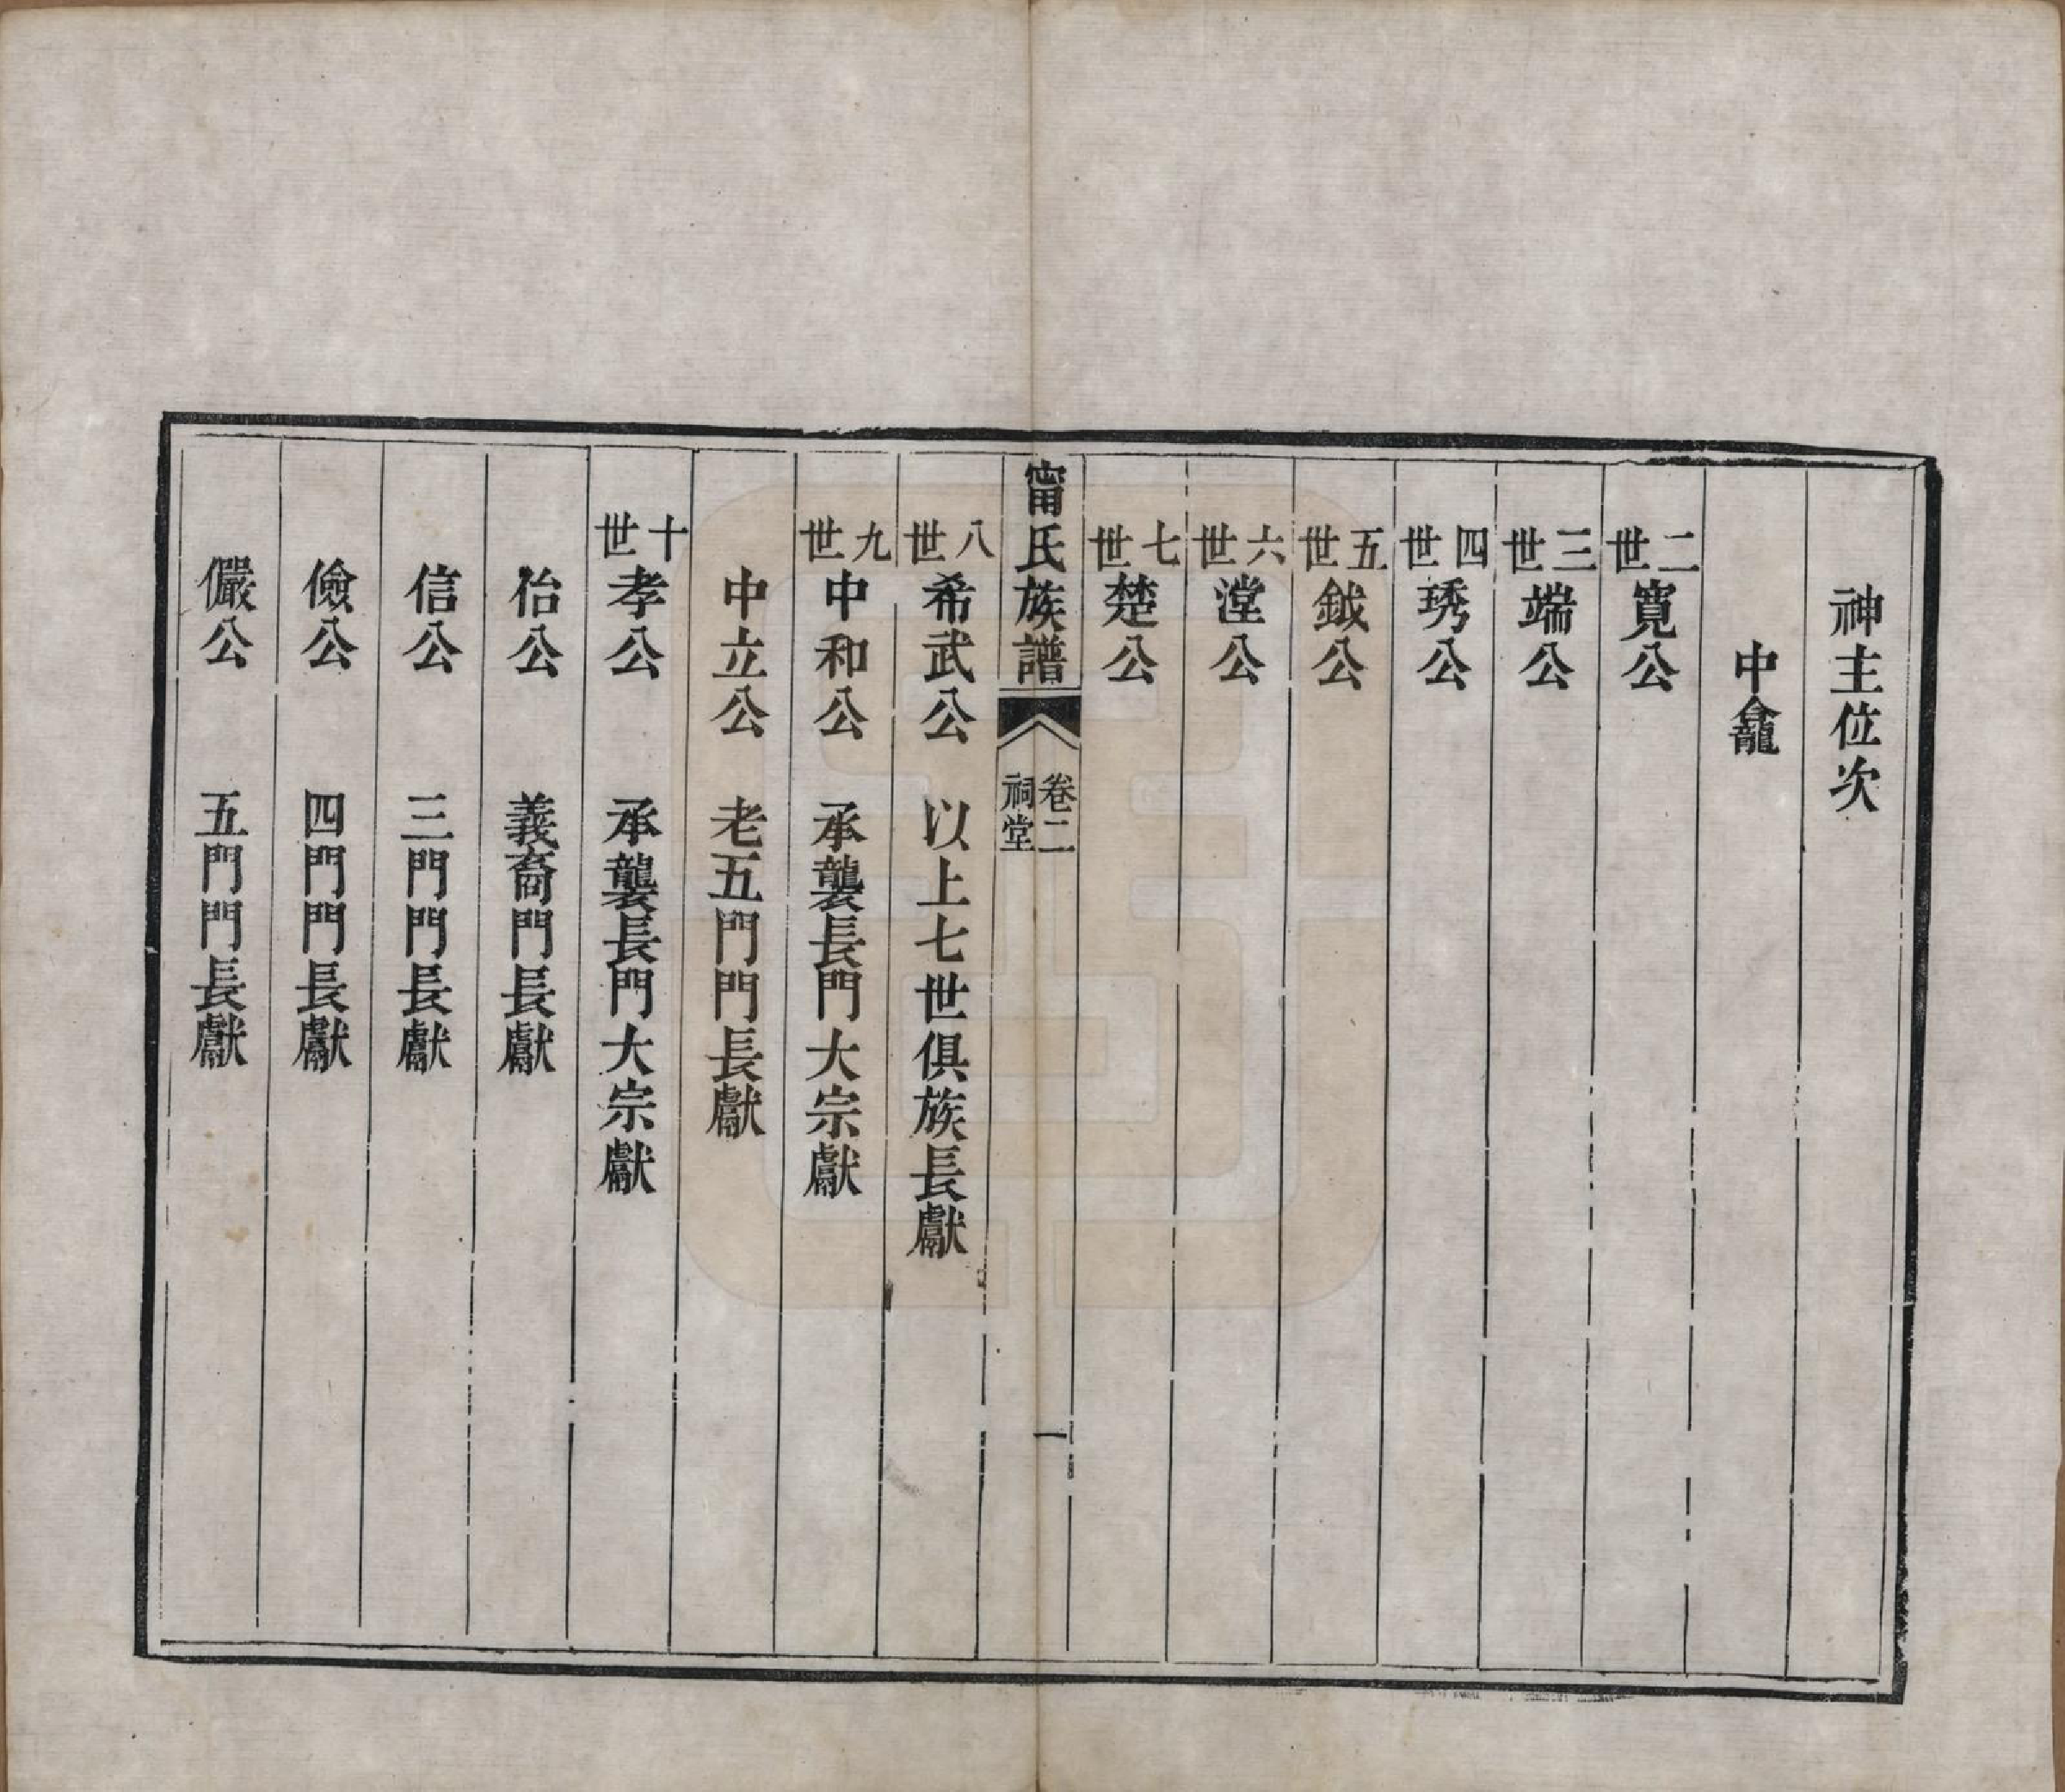 神主位次
中龕
二世寬公
三世端公
四世琇公
五世鉞公
六世瀅公
七世楚公
甯氏族譜 卷二 祠堂 一
八世希武公 以上七世俱族長獻
九世中和公 承襲長門大宗獻
中立公 老五門門長獻
十世孝公 承襲長門大宗獻
佁公 義裔門長獻
信公 三門門長獻
儉公 四門門長獻
儼公 五門門長獻